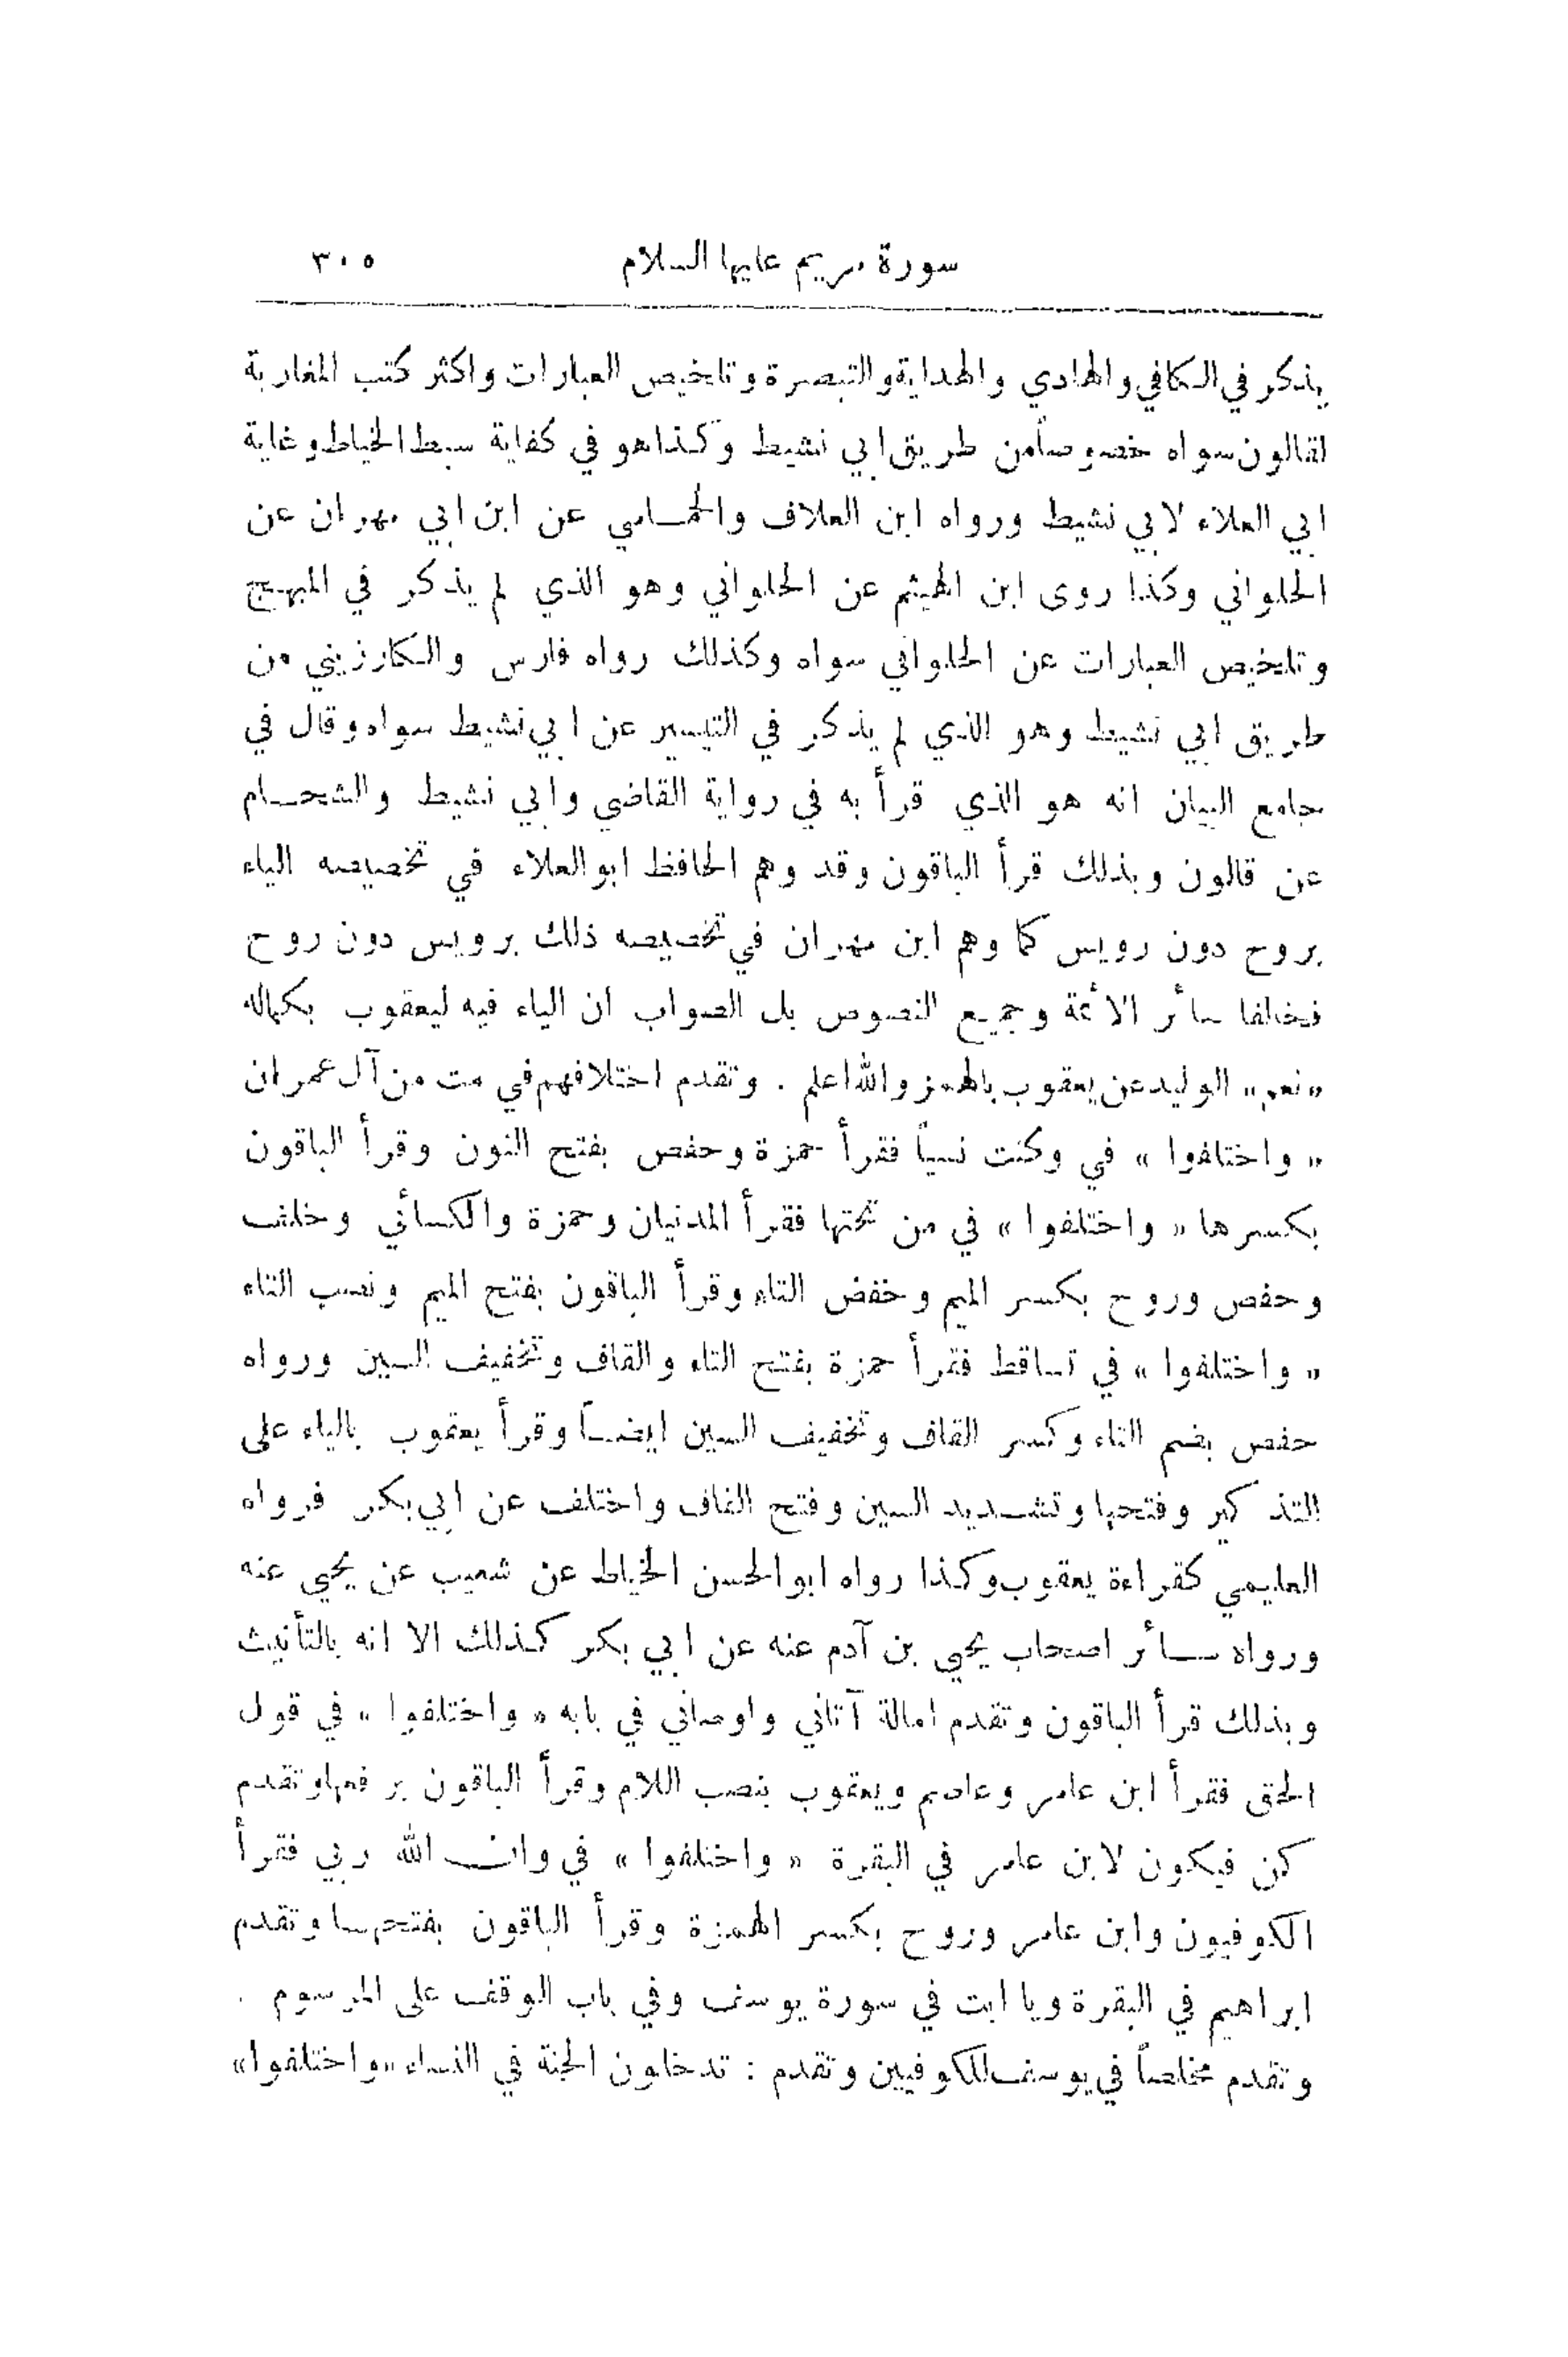 سورة مريم عليها السلام ٣٠٥
يذكر في الكافي والهادي والهداية والتبصرة وتلخيص العبارات واكثر كتب المغاربة
لقالون سواه خصوصاً من طريق ابي نشيط وكذا هو في كفاية سبط الخياط وغاية
ابي العلاء لابي نشيط ورواه ابن العلاف والحمامي عن ابن ابي مهران عن
الحلواني وكذا روى ابن الهيثم عن الحلواني وهو الذي لم يذكر في المبهج
وتلخيص العبارات عن الحلواني سواه وكذلك رواه فارس والكارزيني من
طريق ابي نشيط وهو الذي لم يذكر في التيسير عن ابي نشيط سواه وقال في
جامع البيان انه هو الذي قرأ به في رواية القاضي وابي نشيط والشحام
عن قالون وبذلك قرأ الباقون وقد وهم الحافظ ابو العلاء في تخصيصه الياء
بروح دون رويس كما وهم ابن مهران في تخصيصه ذلك برويس دون روح
فخالفا سائر الائمة وجميع النصوص بل الصواب ان الياء فيه ليعقوب بكماله
«نعم» الوليد عن يعقوب بالهمز والله اعلم . وتقدم اختلافهم في مت من آل عمران
« واختلفوا » في وكنت نسياً فقرأ حمزة وحفص بفتح النون وقرأ الباقون
بكسرها « واختلفوا » في من تحتها فقرأ المدنيان وحمزة والكسائي وخلف
وحفص وروح بكسر الميم وخفض التاء وقرأ الباقون بفتح الميم ونصب التاء
« واختلفوا » في تساقط فقرأ حمزة بفتح التاء والقاف وتخفيف السين ورواه
حفص بضم التاء وكسر القاف وتخفيف السين ايضاً وقرأ يعقوب بالياء على
التذكير وفتحها وتشديد السين وفتح القاف واختلف عن ابي بكر فرواه
العليمي كقراءة يعقوب وكذا رواه ابو الحسن الخياط عن شعيب عن يحيى عنه
ورواه سائر اصحاب يحيى بن آدم عنه عن ابي بكر كذلك الا انه بالتأنيث
وبذلك قرأ الباقون وتقدم امالة آتاني واوصاني في بابه « واختلفوا » في قول
الحق فقرأ ابن عامر وعاصم ويعقوب بنصب اللام وقرأ الباقون برفعها وتقدم
كن فيكون لابن عامر في البقرة « واختلفوا » في وان الله ربي فقرأ
الكوفيون وابن عامر وروح بكسر الهمزة وقرأ الباقون بفتحها وتقدم
ابراهيم في البقرة ويا ابت في سورة يوسف وفي باب الوقف على المرسوم .
وتقدم مخلصاً في يوسف للكوفيين وتقدم : تدخلون الجنة في النساء «واختلفوا»